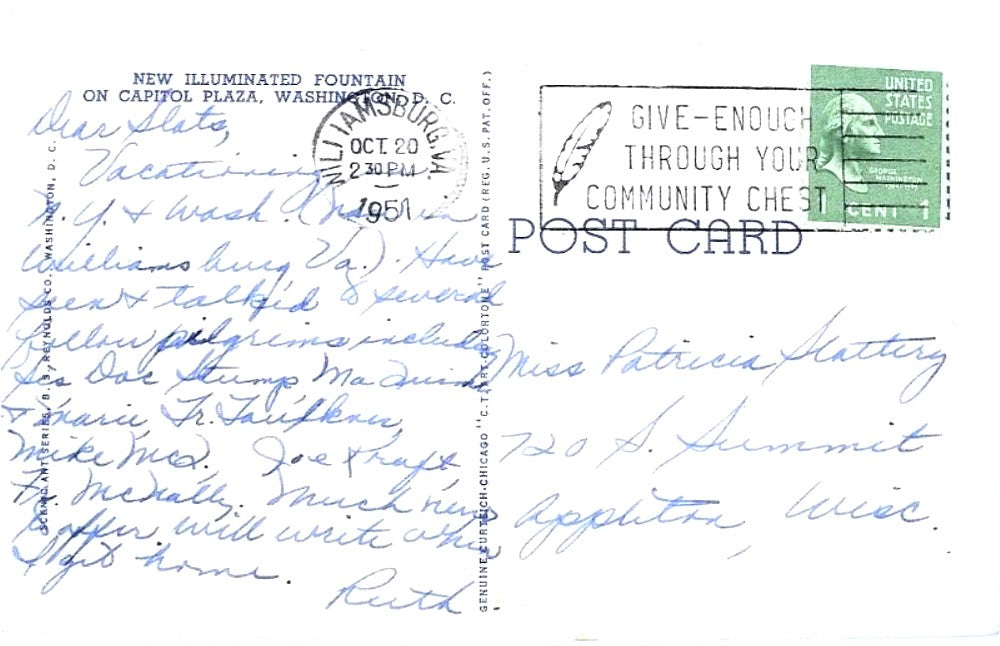 NEW ILLUMINATED FOUNTAIN
ON CAPITOL PLAZA, WASHINGTON, D. C.
Dear Slats,
Vacationing
N. Y. & Wash. (Now in
Williamsburg Va.). Have
seen & talked to several
fellow pilgrims including
Doc Stump Ma
& Marie, Fr. Faulkner,
Mike McD. Joe Kraft
Fr. McNally. Much news
to offer will write when
I get home.
Ruth
SCENIC ART SERIES, B. S. REYNOLDS CO., WASHINGTON, D. C.
GENUINE CURTEICH-CHICAGO "C. T. ART-COLORTONE" POST CARD (REG. U. S. PAT. OFF.)
WILLIAMSBURG, VA.
OCT 20
2 30 PM
1951
GIVE-ENOUGH
THROUGH YOUR
COMMUNITY CHEST
UNITED
STATES
POSTAGE
GEORGE
WASHINGTON
1 CENT 1
POST CARD
Miss Patricia Slattery
720 S. Summit
Appleton, Wisc.